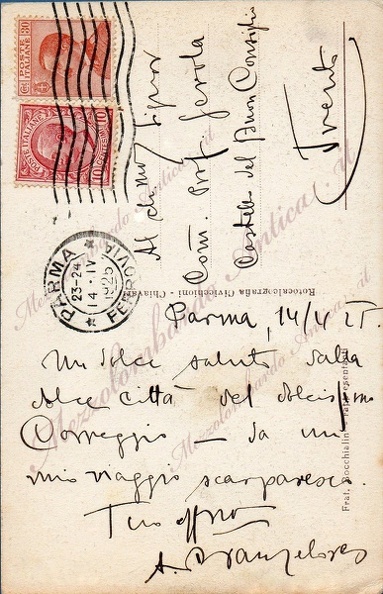 POSTE ITALIANE
30
POSTE ITALIANE
10 CENTESIMI 10
PARMA
FERROVIA
23-24
14·IV
1925
Al chi.mo Signor
Com. Prof. Gerola
Castello del Buon Consiglio
Trento
Rotocalcografia Civicchioni - Chiavari
Parma, 14/4 25.
Un dolce saluto dalla
dolce città del dolcissimo
Correggio — da un
mio viaggio
Tuo aff.mo
A.
Frat. Bocchialini
Mezzolombardo Antica